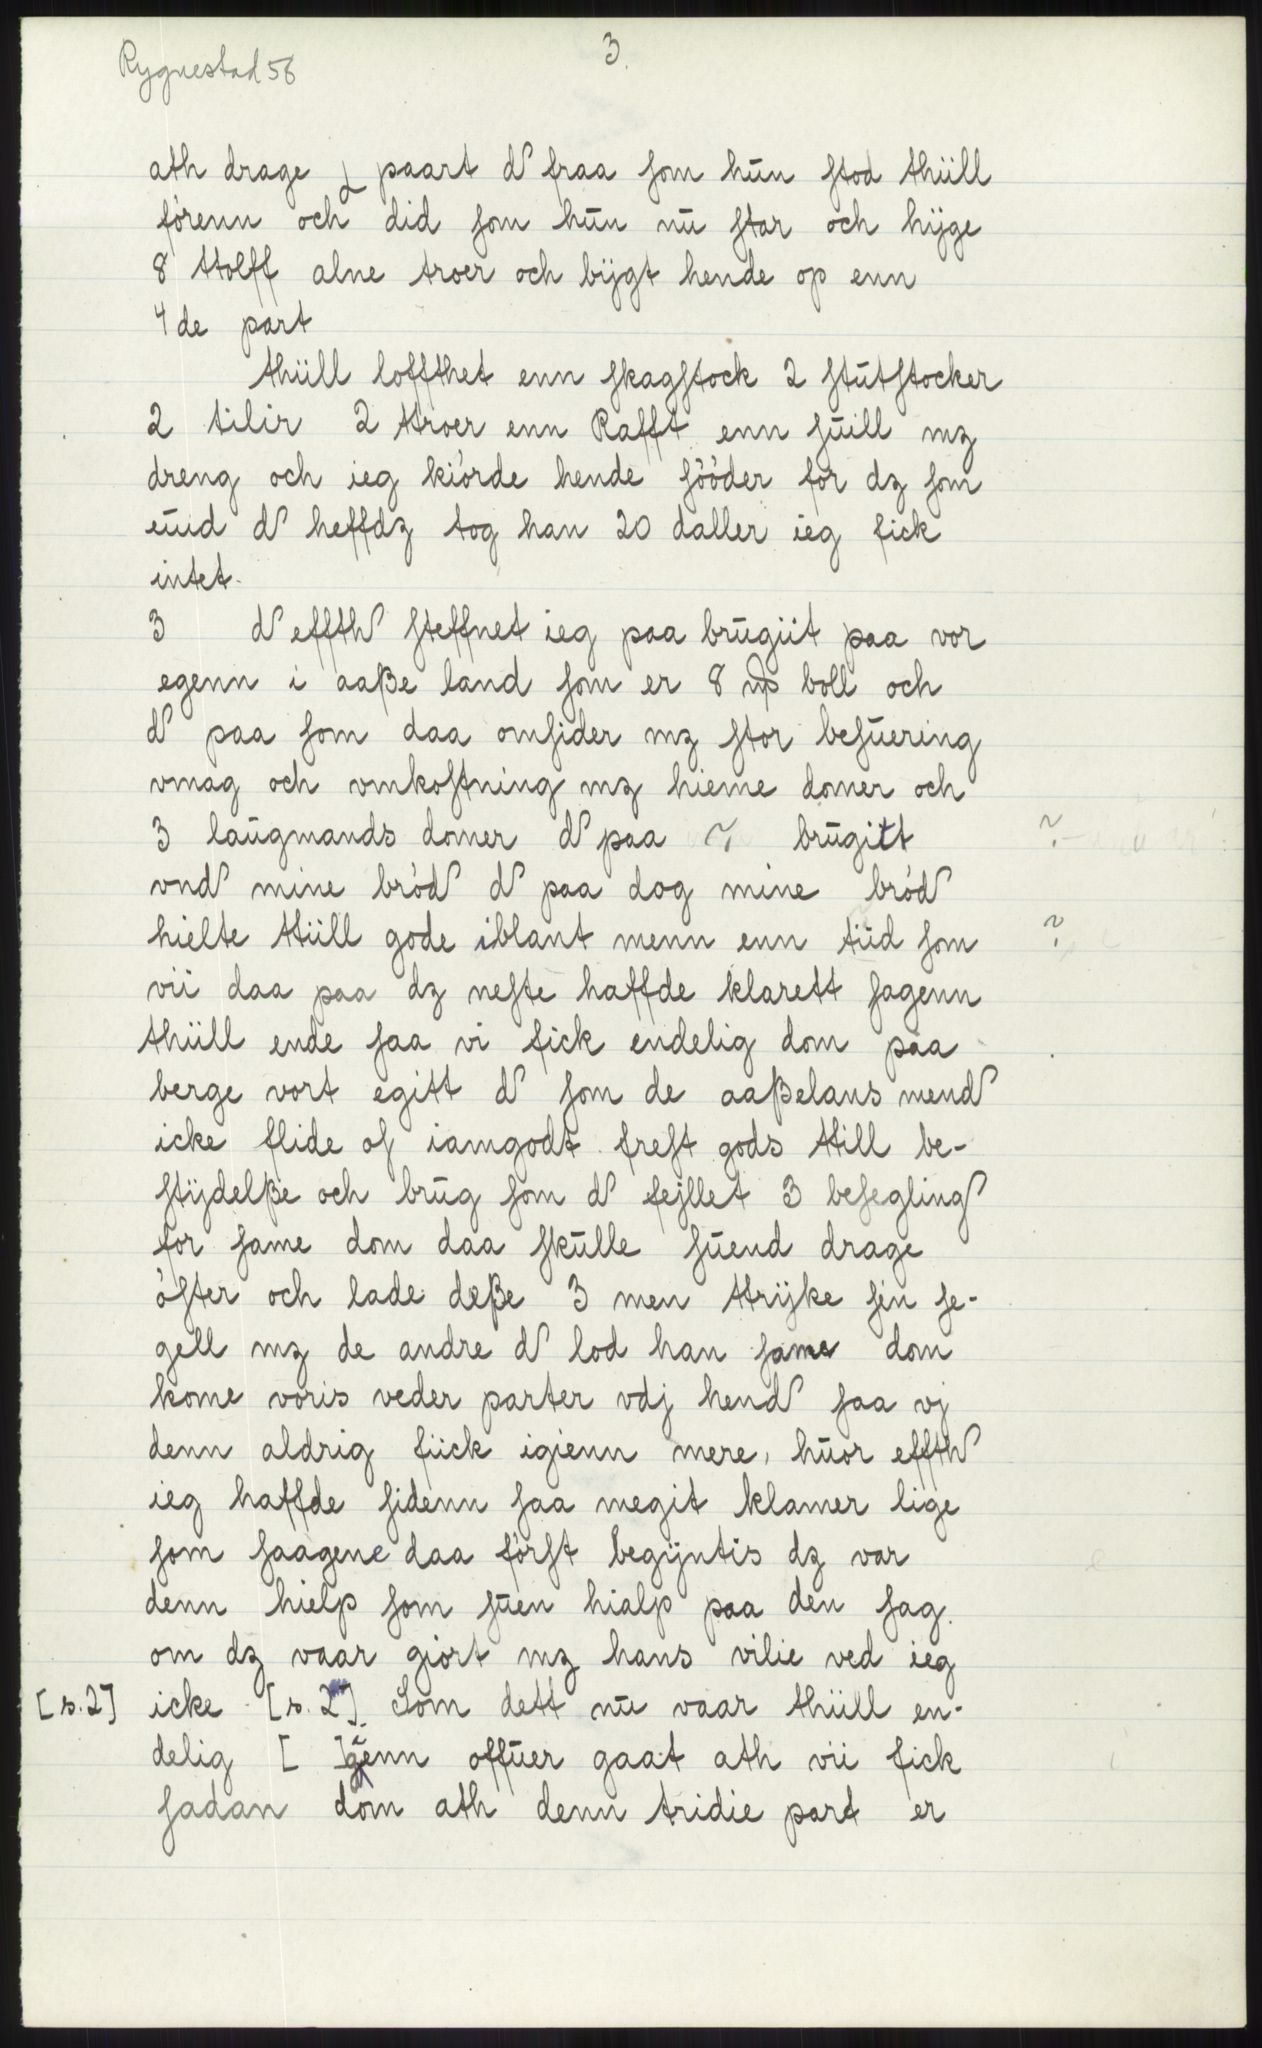 Rygnestad 56
3.
ath drage paart d fraa som hūn stod thüll
förenn och did som hūn nū star och hÿge
8 ttolff alne troer och bÿgt hende op enn
4 de part
thüll loffthet enn skagstock 2 stūtstocker
2 tilir 2 ttroer enn Rafft enn sūill mz
dreng och ieg kiörde hende sööder for dz som
eūud d heffdz tog han 20 daller ieg fick
intet.
3 d effth steffnet ieg paa brūgiit paa vor
egenn i aaße land som er 8 boll och
d paa som daa omsider mz stor besuering
vmag och vmkostning mz hieme domer och
3 laūgmands domer d paa brūgitt ?
vnd mine bröd d paa dog mine bröd
hielte ttüll gode iblant menn enn tüd som ?
vii daa paa dz neste haffde klarett sagenn
thüll ende saa vi fick endelig dom paa
berge vort egitt d som de aaßelans mend
icke flide of iamgodt frest gods ttill be-
stÿdelße och brūg som d fejllet 3 besegling
for same dom daa skūlle sūend drage
öfter och lade deße 3 men ttrÿke sin se-
gell mz de andre d lod han same dom
kome voris veder parter vdj hend saa vj
denn aldrig fiick igienn mere, hūor effth
ieg haffde sidenn saa megit klamer lige
som saagene daa först begÿntis dz var
denn hielp som sūen hialp paa den sag.
om dz vaar giort mz hans vilie ved ieg
[s.2] icke [s. 2]. Som dett nū vaar thüll en-
delig [ ]genn offūer gaat ath vii fick
sadan dom ath denn tridie part er